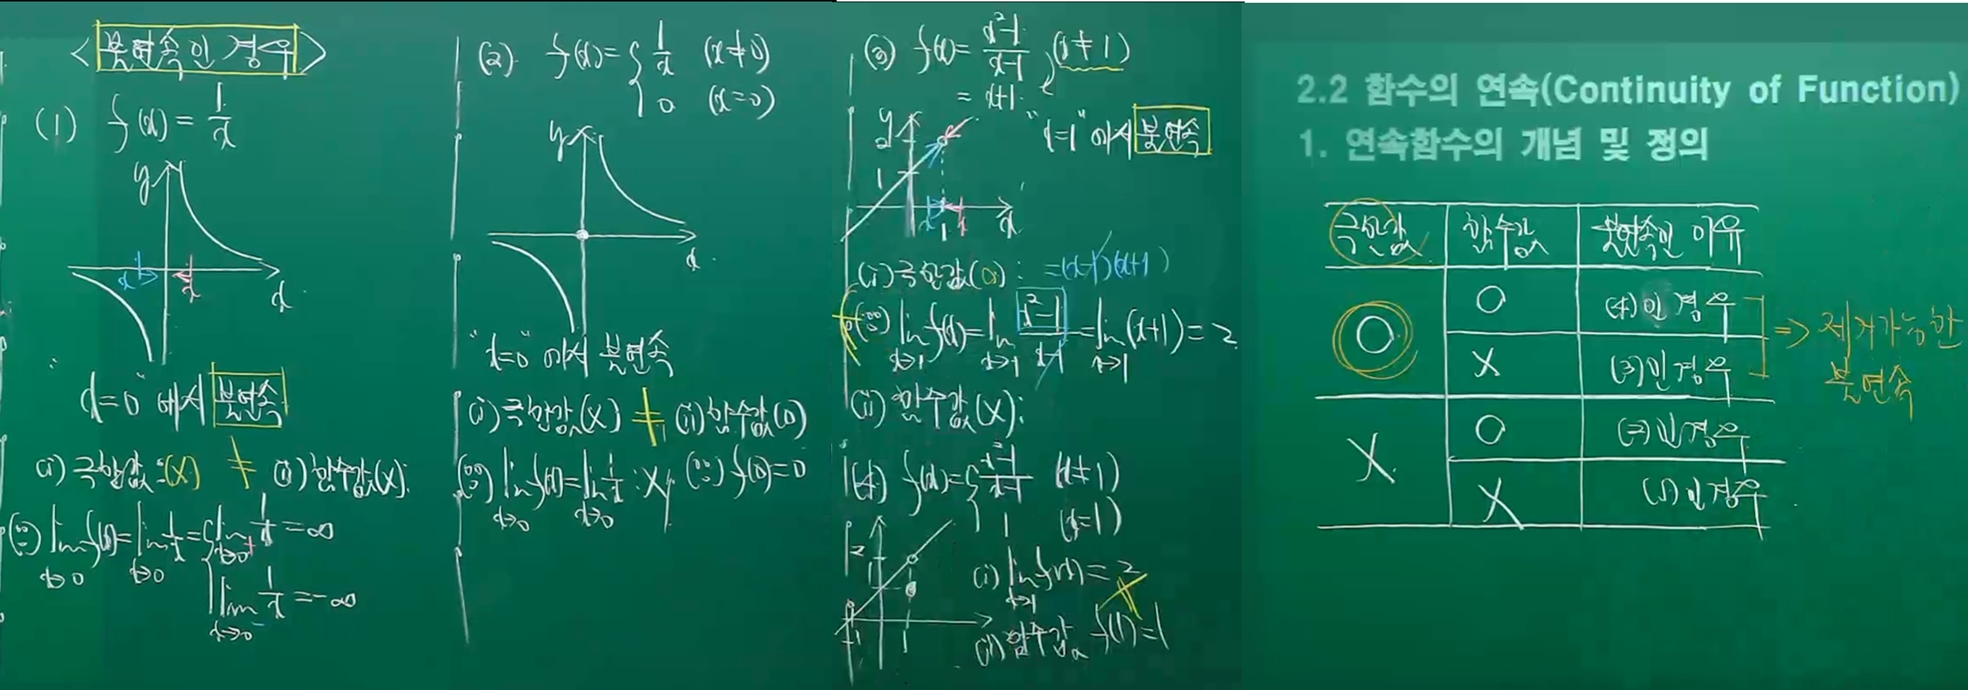 <불연속인 경우>
(1) f(x) = 1/x
y
x
x x
"x=0"에서 불연속
(i) 극한값:(X) ≠ (ii) 함수값(X):
(∵) lim x→0 f(x) = lim x→0 1/x = { lim x→0+ 1/x = ∞
lim x→0- 1/x = -∞
(2) f(x) = { 1/x (x≠0)
0 (x=0)
y
x
"x=0"에서 불연속
(i) 극한값(X) ≠ (ii) 함수값(0)
(∵) lim x→0 f(x) = lim x→0 1/x : X (∵) f(0)=0
(3) f(x) = x²-1/x-1 (x≠1)
= x+1
"x=1"에서 불연속
y
2
1
x x
1 x
(i) 극한값(O) : =(x-1)(x+1)
(∵) lim x→1 f(x) = lim x→1 x²-1/x-1 = lim x→1 (x+1) = 2
(ii) 함수값(X):
(4) f(x) = { x²-1/x-1 (x≠1)
1 (x=1)
2
1
-1 1
(i) lim x→1 f(x) = 2
≠
(ii) 함수값 f(1)=1
2.2 함수의 연속(Continuity of Function)
1. 연속함수의 개념 및 정의
극한값 함수값 불연속인 이유
O O (4)인 경우
X (3)인 경우
⇒ 제거가능한
불연속
X O (2)인 경우
X (1)인 경우